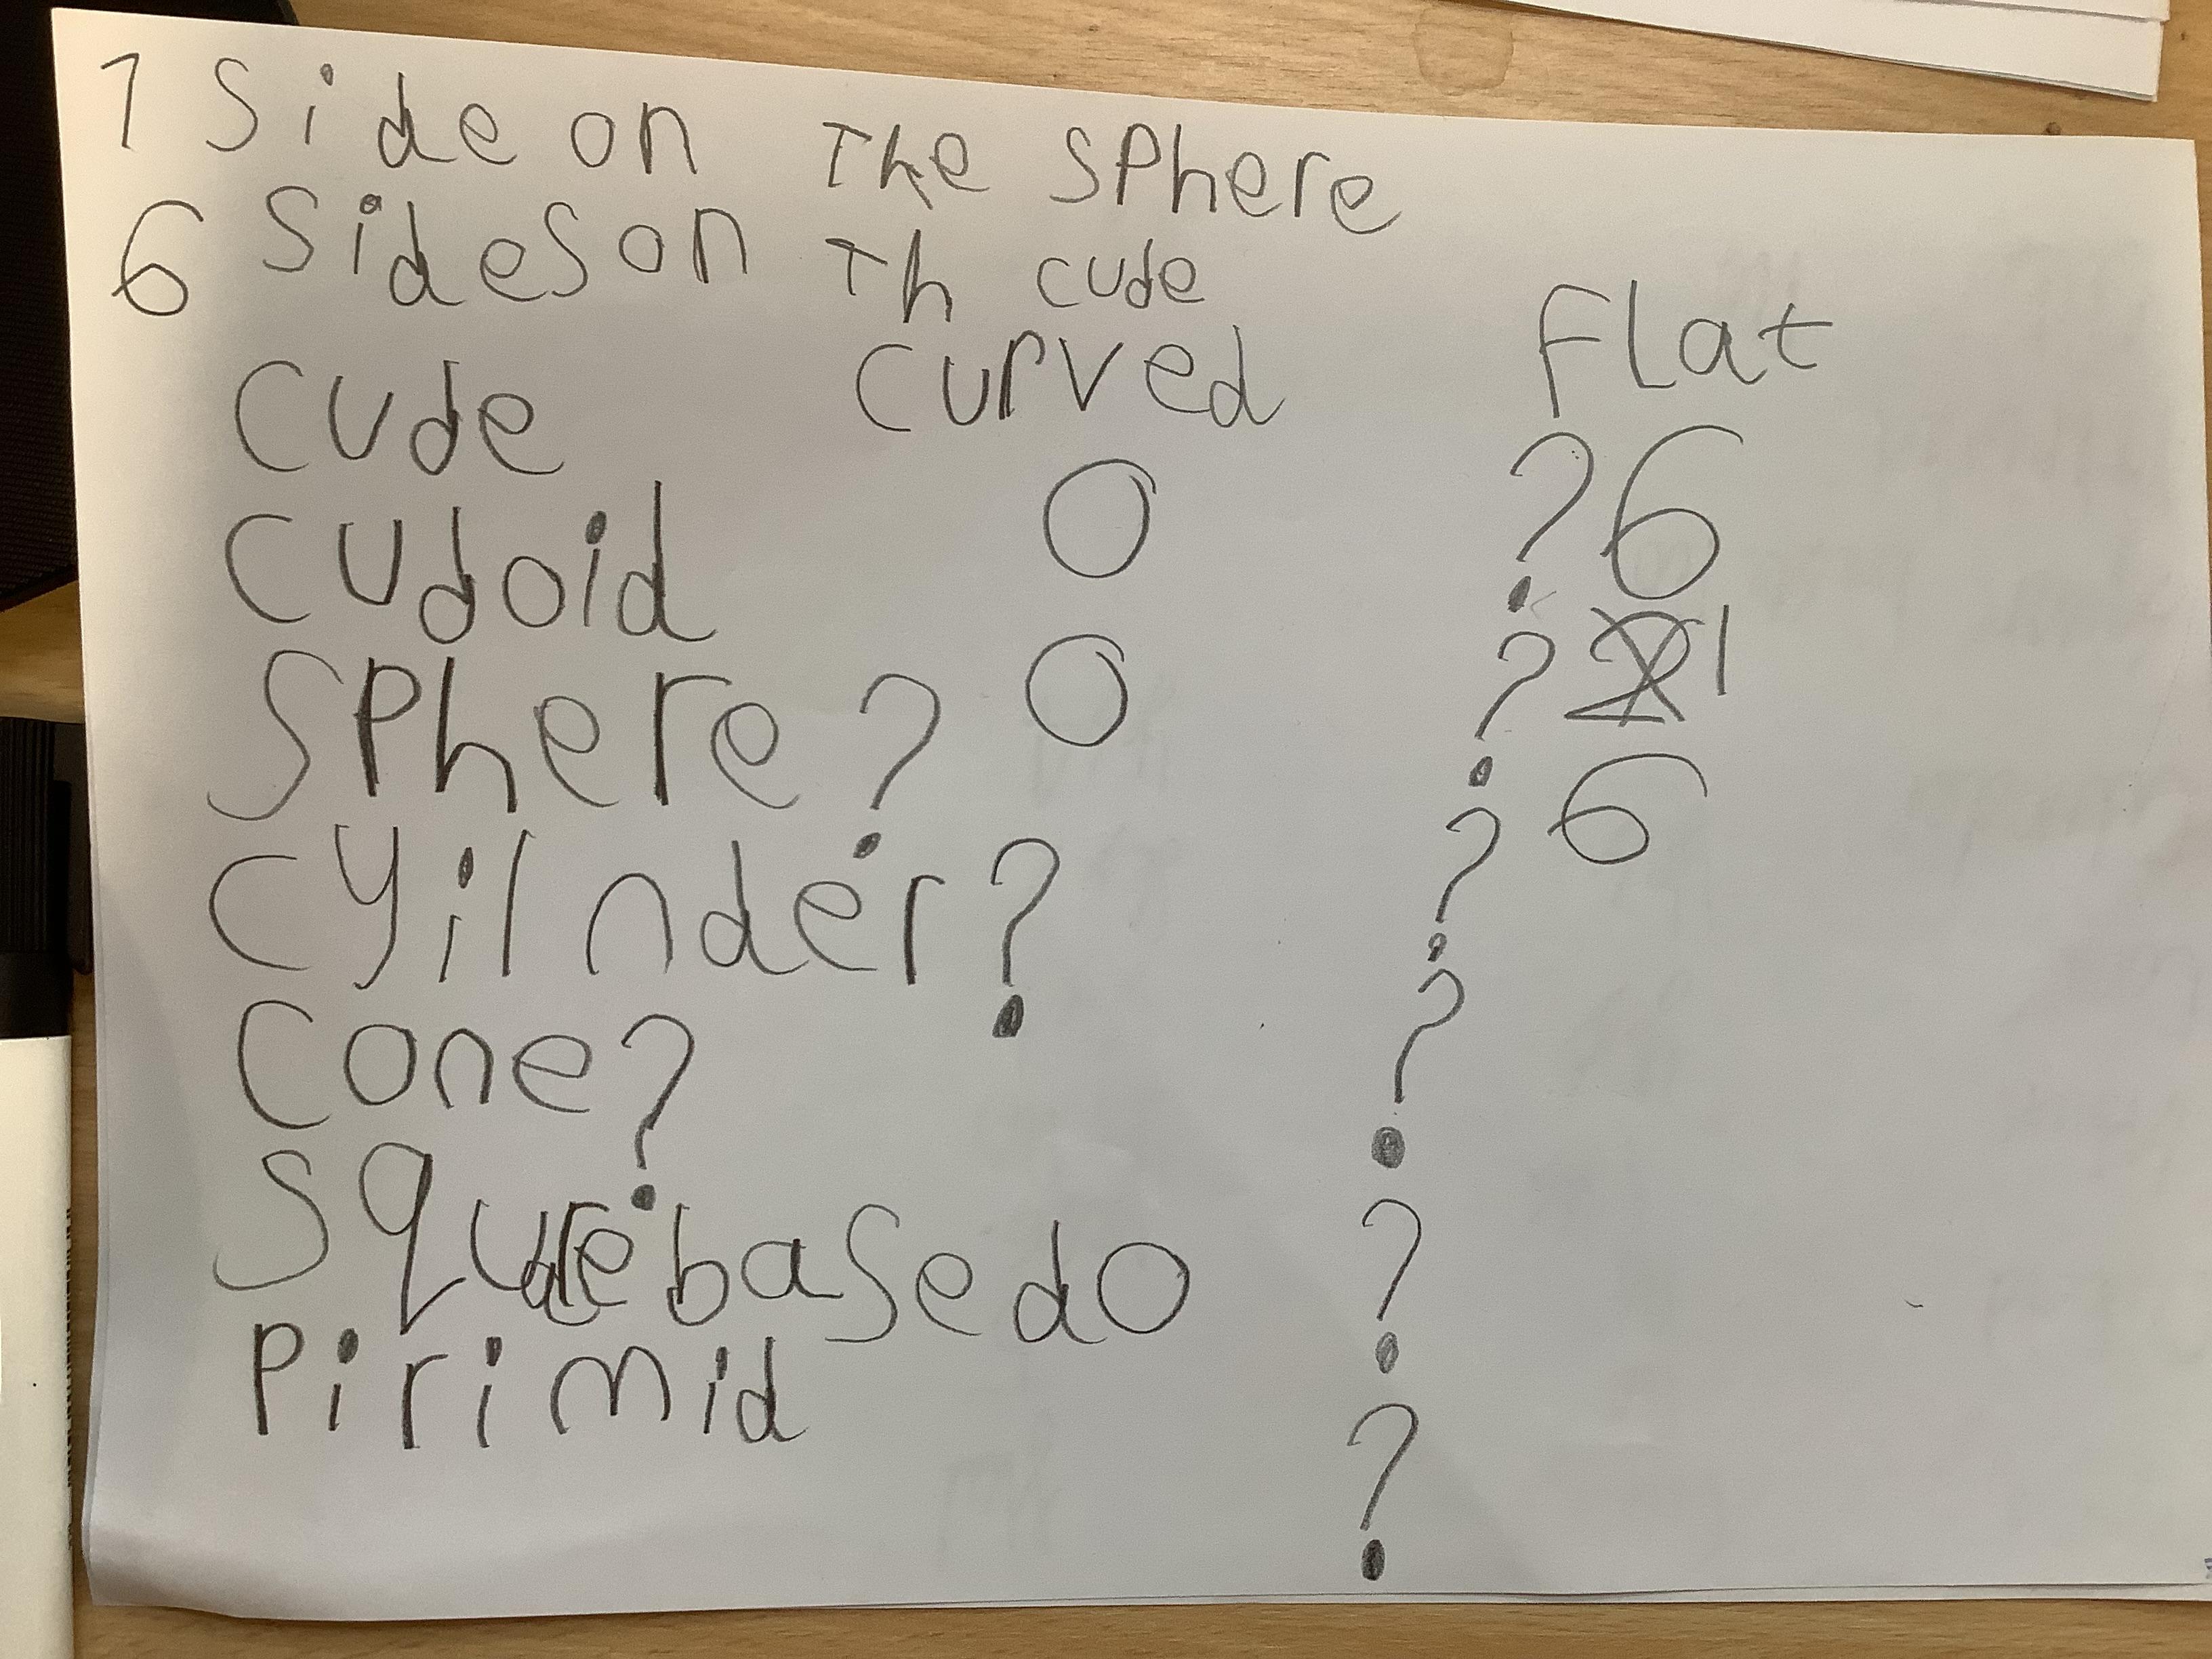 1 Side on The sphere
6 Sides on Th cude
curved Flat
cude
cudoid 0 ? 6
sphere? 0 ? 1
6
cyilnder? ?
cone? ?
squre based 0 ?
Pirimid ?